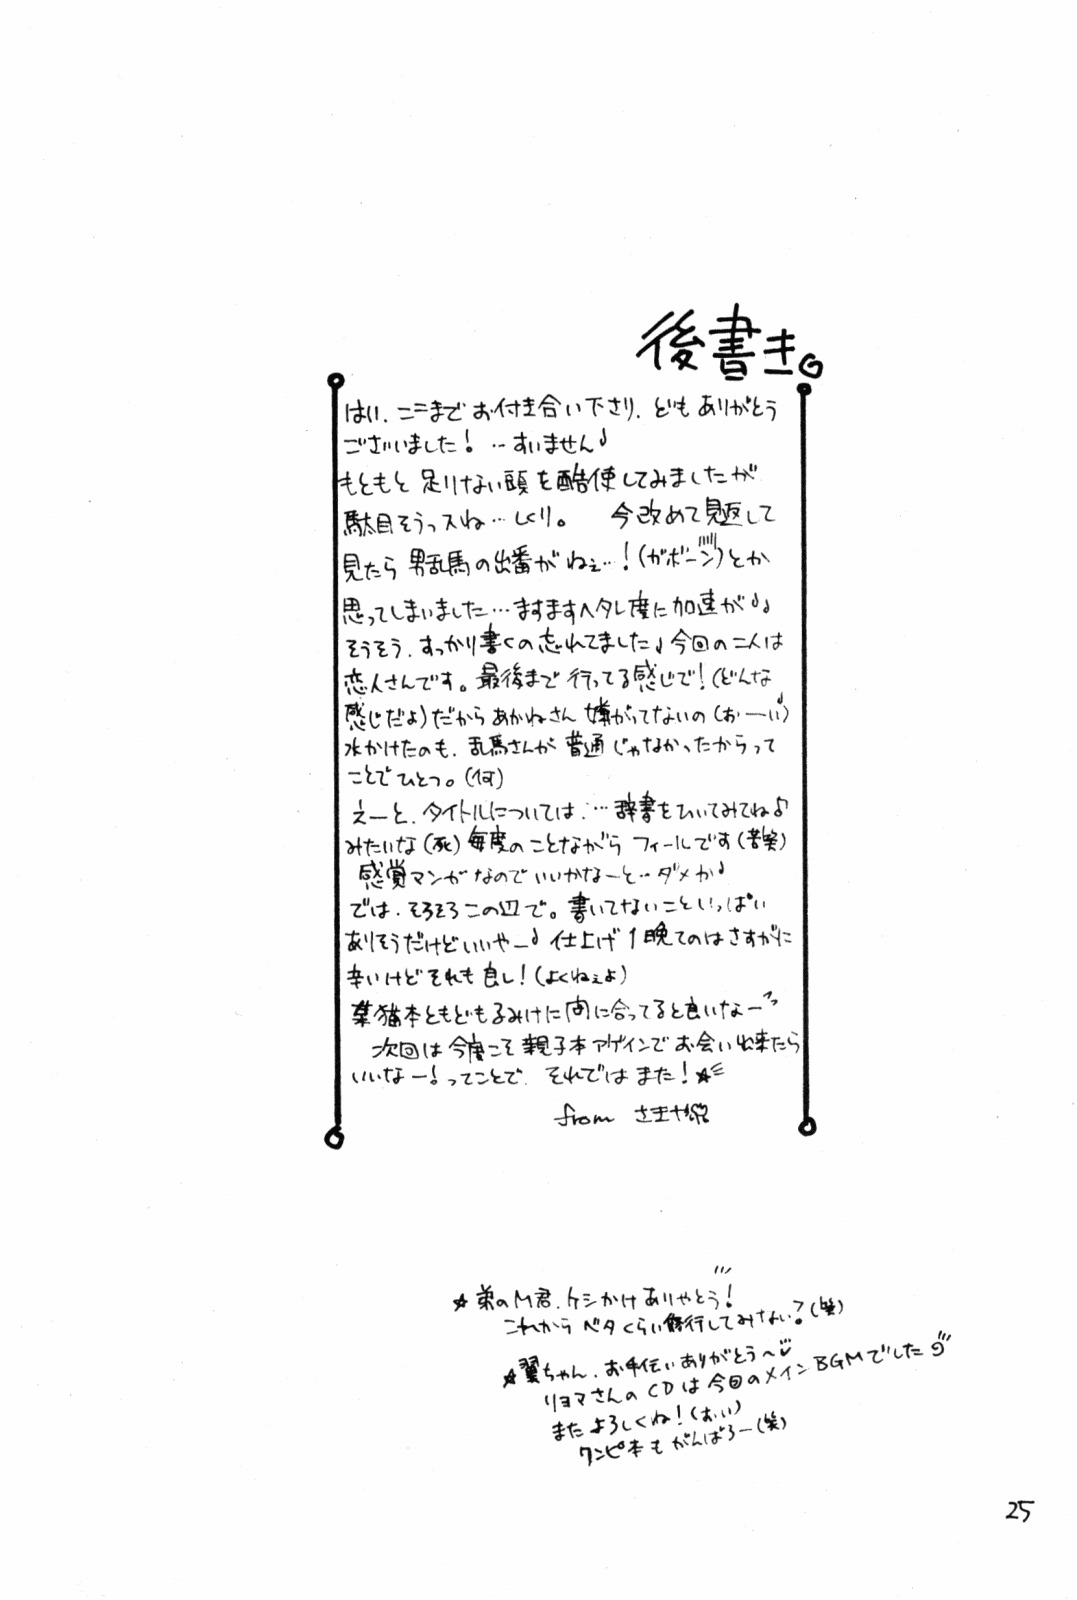 後書き。
はい、ここまでお付き合い下さり、どもありがとう
ございました！…すいません♪
もともと足りない頭を酷使してみましたが
駄目そうっスね…しくり。 今改めて見返して
見たら男乱馬の出番がねぇ…！(ガボーン)とか
思ってしまいました…ますますヘタレ度に加速が♪♪
そうそう、すっかり書くの忘れてました♪今回の二人は
恋人さんです。最後まで行ってる感じで！(どんな
感じだよ)だからあかねさん嫌がってないの(おーい)♪
水かけたのも、乱馬さんが普通じゃなかったからって
ことでひとつ。(何)
えーと、タイトルについては、…辞書をひいてみてね♪
みたいな(死)毎度のことながらフィールです(苦笑)
感覚マンガなのでいいかなーと…ダメか♪
では、そろそろこの辺で。書いてないこといっぱい
ありそうだけどいいやー♪仕上げ1晩てのはさすがに
辛いけどそれも良し！(よくねぇよ)
猫本ともどもるみけに間に合ってると良いなーっ
次回は今度こそ親子本アゲインでお会い出来たら
いいなー！ってことで、それではまた！★
from さまや
★弟のM君、ケシかけありやとう！
これからベタくらい修行してみない？(笑)
★翼ちゃん、お手伝いありがとう〜
リョマさんのCDは今回のメインBGMでした
またよろしくね！(おい)
ワンピ本もがんばろー(笑)
25